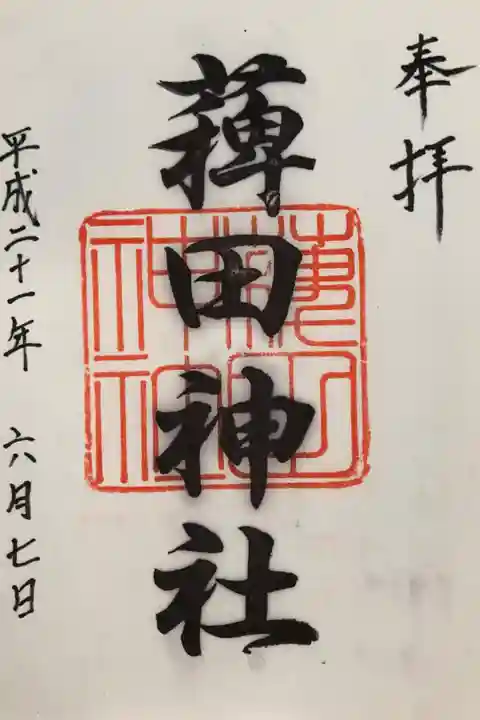 奉拝
薭田神社
平成二十一年 六月七日